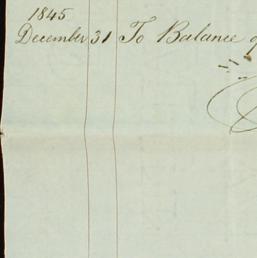 1845
December 31 To Balance of